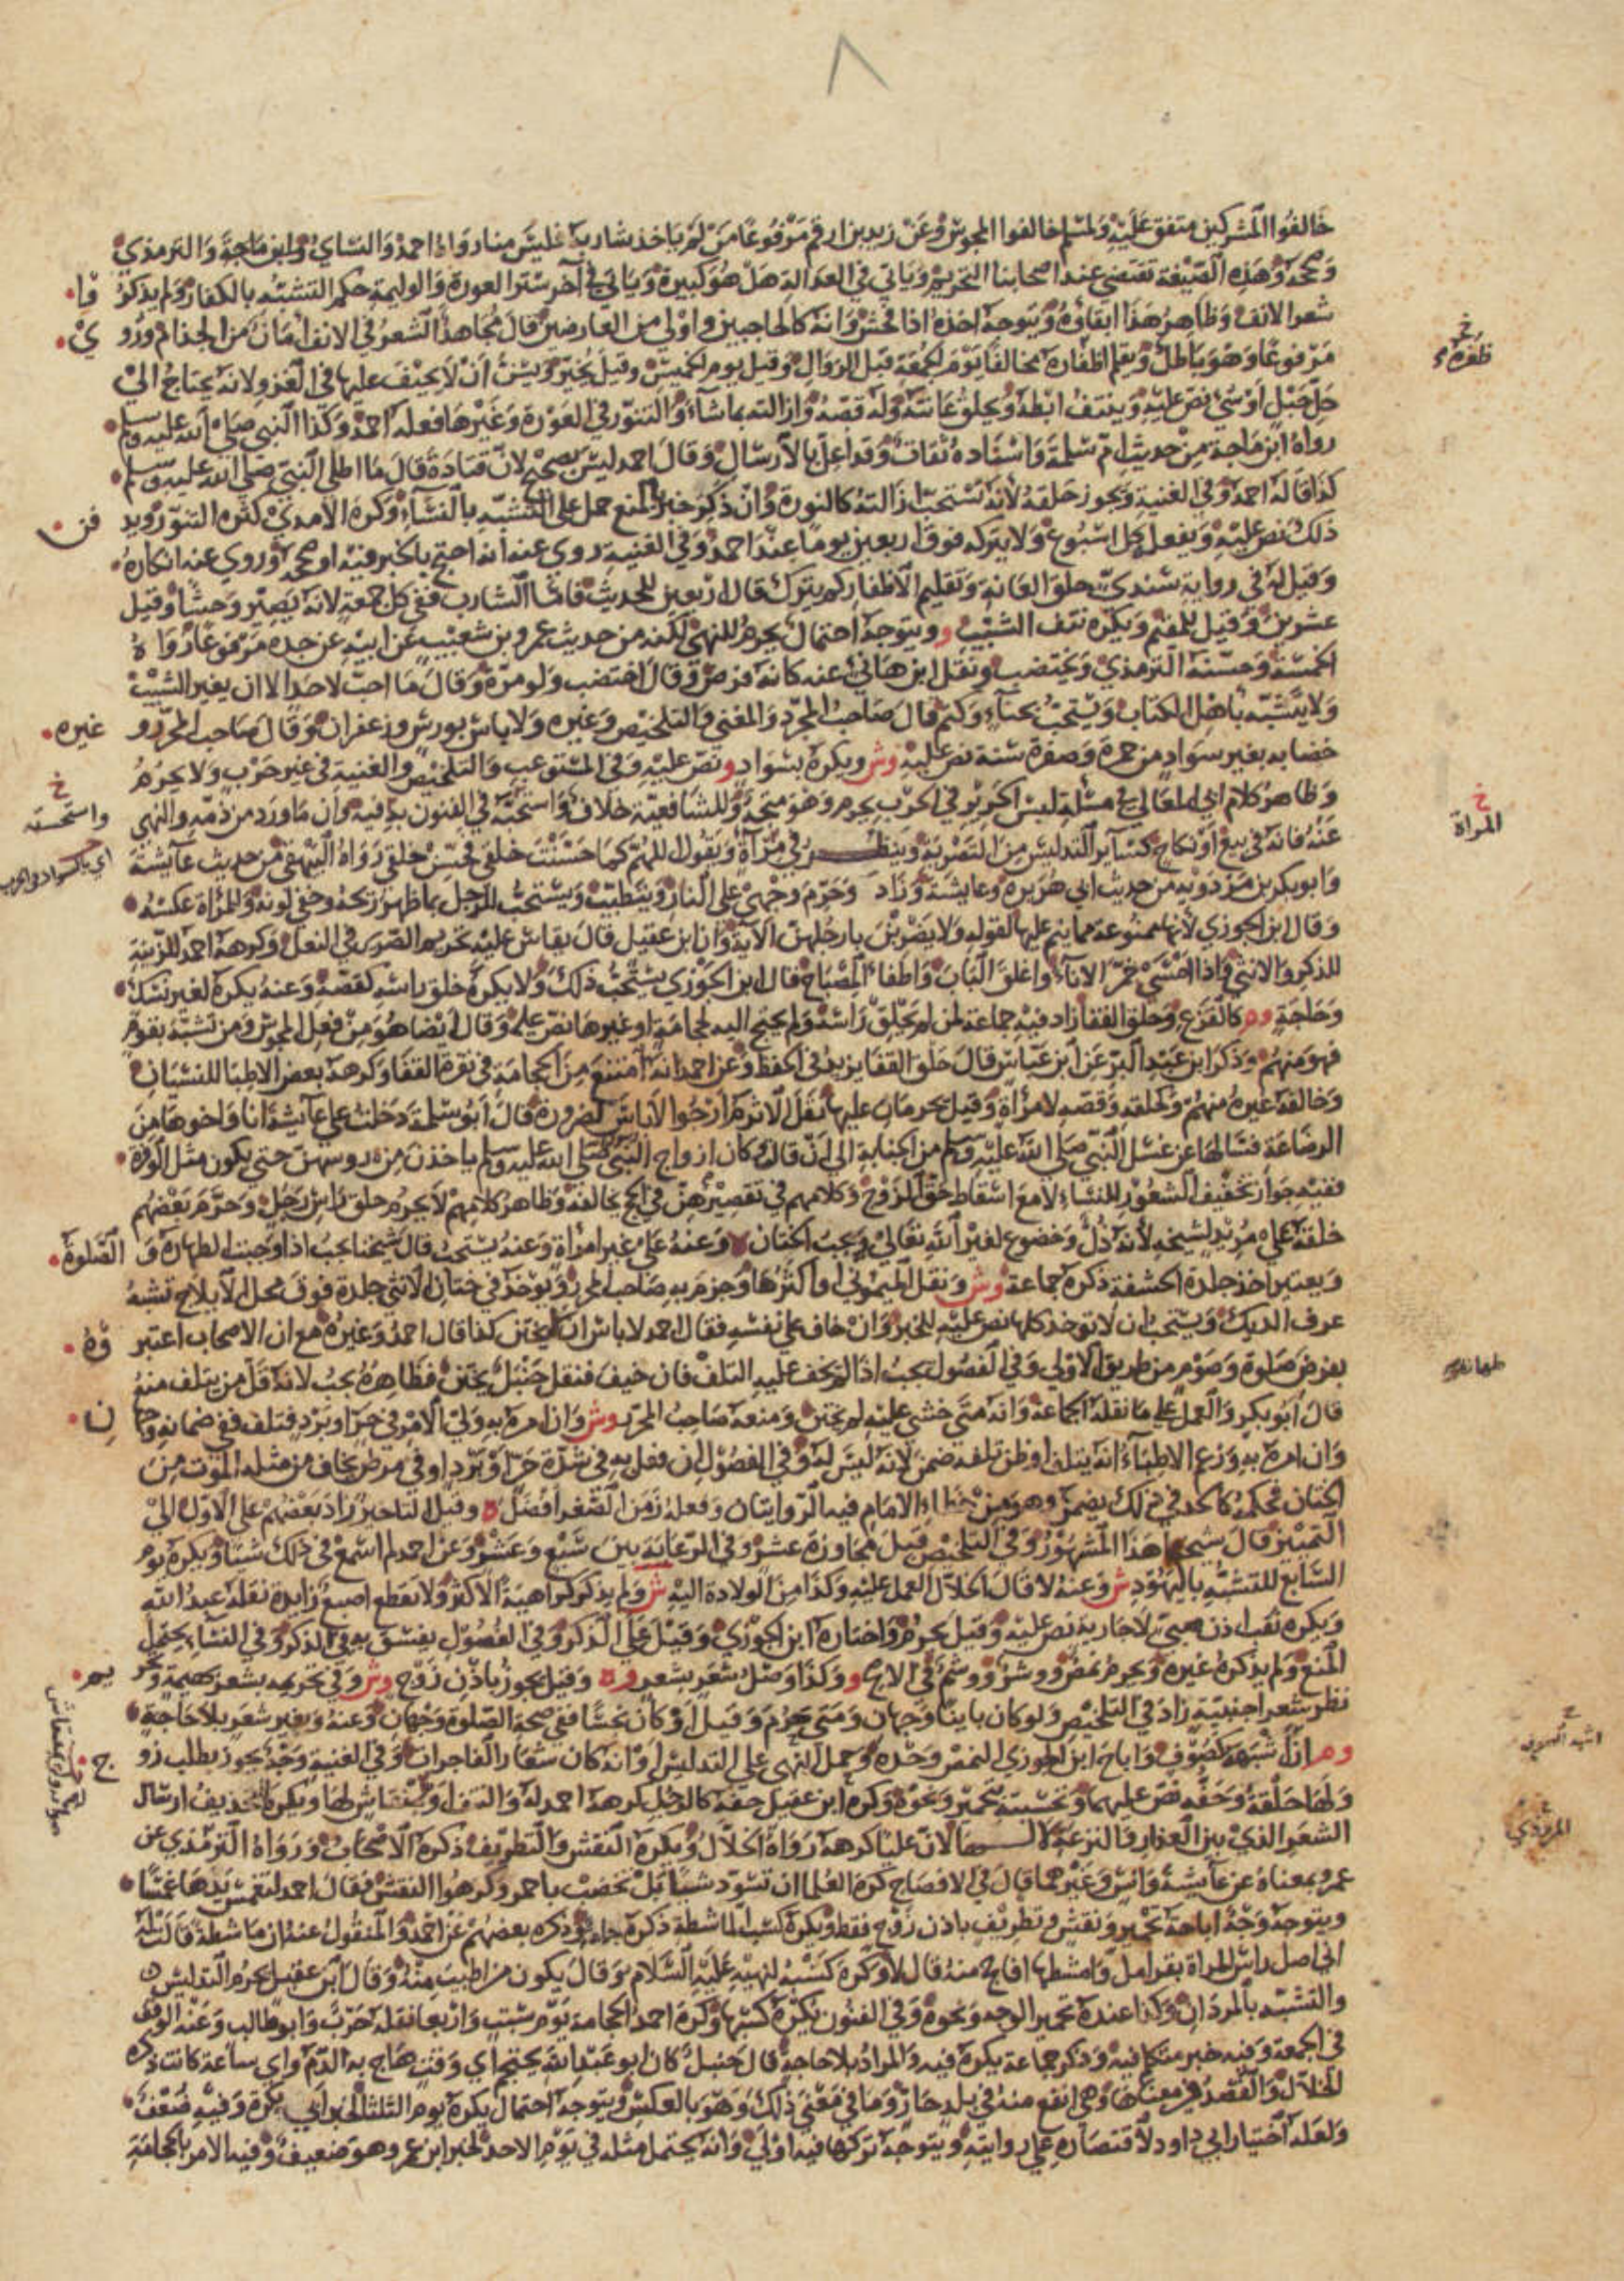 ٨
خالفوا المشركين متفق عليه ولمسلم خالفوا المجوس وعن زيد بن ارقم مرفوعا من لم ياخذ شاربه فليس منا رواه احمد والنساي وابن ماجة والترمذي
وصححه وهذه الصيغة تقتضي عند اصحابنا التحريم وياتي في العدالة هل هو كبيرة وياتي في آخر ستر العورة والوليمة حكم التشبه بالكفار ولم يذكروا
شعر الانف وظاهر هذا ابقاؤه ويتوجه اخذه اذا فحش وانه كالحاجبين واولى من العارضين قال مجاهد الشعر في الانف امان من الجذام وروي
مرفوعا وهو باطل ويقلم اظفاره مخالفا يوم الجمعة قبل الزوال وقيل يوم الخميس وقيل يخير ويسن ان لا يحيف عليها في الغزو لانه يحتاج الى
حل حبل او شي نص عليه وينتف ابطه ويحلق عانته وله قصه وازالته بما شاء والتنور في العورة وغيرها فعله احمد وكذا النبي صلى الله عليه وسلم
رواه ابن ماجة من حديث ام سلمة واسناده ثقات وقد اعل بالارسال وقال احمد ليس بصحيح لان قتادة قال ما اطلى النبي صلى الله عليه وسلم
كذا قاله احمد وفي الغنية ويجوز حلقه لانه يستحب ازالته كالنورة وان ذكر خبر بالمنع حمل على التشبه بالنساء وكره الآمدي كثرة التنور ويدفن
ذلك نص عليه ويفعله كل اسبوع ولا يتركه فوق اربعين يوما عند احمد وفي الغنية روي عنه انه احتج بالخبر فيه وصححه وروي عنه انكاره
وقيل له في رواية سندي حلق العانة وتقليم الاظفار كم يترك قال اربعين للحديث فاما الشارب ففي كل جمعة لانه يصير وحشا وقيل
عشرين وقيل للمقيم ويكره نتف الشيب و ويتوجه احتمال يحرم للنهي لكنه من حديث عمرو بن شعيب عن ابيه عن جده مرفوعا رواه
الخمسة وحسنه الترمذي ويختضب ونقل ابن هاني عنه كانه فرض وقال اختضب ولو مرة وقال ما احب لاحد الا ان يغير الشيب
ولا يتشبه باهل الكتاب ويستحب بحناء وكتم قال صاحب المحرر والمغني والتلخيص وغيره ولا باس بورس وزعفران وقال صاحب المحرر وغيره
خضابه بغير سواد من حمرة وصفرة سنة نص عليه وش ويكره بسواد و نص عليه وفي المستوعب والتلخيص والغنية في غير حرب ولا يحرم
وظاهر كلام ابي المعالي في مسئلة لبس الحرير في الحرب يحرم وهو متجه وللشافعية خلاف واستحبه في الفنون به فيه وان ما ورد من ذمه والنهي
عنه فانه في بيع او نكاح كساير التدليس من التصرية وينظر في مرآة ويقول اللهم كما حسنت خلقي فحسن خلقي رواه البيهقي من حديث عايشة
وابو بكر بن مردويه من حديث ابي هريرة وعايشة وزاد وحرم وجهي على النار ويتطيب ويستحب للرجل بما ظهر ريحه وخفي لونه والمراة عكسه
وقال ابن الجوزي لانها ممنوعة مما ينم عليها لقوله ولا يضربن بارجلهن الآية وان ابن عقيل قال يقاس عليه تحريم الصرير في النعل وكرهه احمد للزينة
للذكر والانثى واذا امسى خمر الاناء واغلق الباب واطفا المصباح قال ابن الجوزي يستحب ذلك ولا يكره حلق راسه كقصه وعنه يكره لغير نسك
وحاجة وم كالقزع وحلق القفا زاد فيه جماعة لمن لم يحلق راسه ولم يحتج اليه لحجامة او غيرها نص عليه وقال ايضا هو من فعل المجوس ومن تشبه بقوم
فهو منهم وذكر ابن عبد البر عن ابن عباس قال حلق القفا يزيد في الحفظ وعن احمد انه امتنع من الحجامة في نقرة القفا وكرهه بعض الاطبا للنسيان
وخالفه غيره منهم ويحلقه وقصه لامراة وقيل يحرمان عليها نقل الاثرم ارجوا لا باس لضرورة قال ابو سلمة دخلت على عايشة انا واخوها من
الرضاعة فسالها عن غسل النبي صلى الله عليه وسلم من الجنابة الى ان قال وكان ازواج النبي صلى الله عليه وسلم ياخذن من رءوسهن حتى يكون مثل الوفرة
ففيه جواز تخفيف الشعور للنساء لا مع اسقاط حق الزوج وكلامهم في تقصيرهن في الحج يخالفه وظاهر كلامهم لا يحرم حلق راس رجل وحرم بعضهم
حلقه على مريد لشيخه لانه ذل وخضوع لغير الله تعالى ويجب الختان وعنه على غير امراة وعنه يستحب قال شيخنا يجب اذا وجبت الطهارة والصلوة
ويعتبر اخذ جلدة الحشفة ذكره جماعة وش ونقل الميموني او اكثرها وجزم به صاحب المحرر ويؤخذ في ختان الانثى جلدة فوق محل الايلاج تشبه
عرف الديك ويستحب ان لا توخذ كلها نص عليه للخبر وان خاف على نفسه فقال احمد لا باس ان لا يختن كذا قال احمد وغيره مع ان الاصحاب اعتبروه
بفرض صلوة وصوم من طريق الاولى وفي الفصول يجب اذا لم يخف عليه التلف فان خيف فنقل حنبل يختن فظاهره يجب لانه قل من يتلف منه
قال ابو بكر والعمل على ما نقله الجماعة وانه متى خشي عليه لم يختن ومنعه صاحب المحرر وش وان امره به ولي الامر في حر او برد فتلف ففي ضمانه وجهان
وان امره به وزعم الاطباء انه يتلف او ظن تلفه ضمن لانه ليس له وفي الفصول ان فعل به في شدة حر او برد او في مرض يخاف من مثله الموت من
الختان فحكمه كالحد في ذلك يضمن وهو من خطا الامام فيه الروايتان وفعله زمن الصغر افضل وقيل التاخير زاد بعضهم على الاول الى
التمييز قال شيخنا هذا المشهور وفي التلخيص قبل مجاوزة عشر وفي الرعاية بين سبع وعشر وعن احمد لم اسمع في ذلك شيئا ويكره يوم
السابع للتشبه باليهود ش وعنه لا قال الخلال العمل عليه وكذا من الولادة اليه ش ولم يذكر كراهية الاكثر ولا تقطع اصبع زايدة نقله عبد الله
ويكره ثقب اذن صبي لا جارية نص عليه وقيل يحرم واختاره ابن الجوزي وقيل على الذكر وفي الفصول يفسق به في الذكر وفي النساء يحتمل
المنع ولم يذكره غيره ويحرم نمص ووشر ووشم في الاصح و وكذا وصل شعر بشعر و وقيل يجوز باذن زوج وش وفي تحريمه بشعر بهيمة وتحريم
نظر شعر اجنبية زاد في التلخيص ولو كان باينا وجهان ومتى حرم وقيل او كان نجسا ففي صحة الصلوة وجهان وعنه وبغير شعر بلا حاجة
وم ان اشبهه كصوف واباح ابن الجوزي النمص وحده وحمل النهي على التدليس او انه كان شعار الفاجرات وفي الغنية وجه يجوز بطلب زوج
ولها حلقه وحفه نص عليهما وتحسينه بتحمير ونحوه وكره ابن عقيل حفه كالرجل كرهه احمد له والنتف ولو بمنقاش لها ويكره التحذيف ارسال
الشعر الذي بين العذار والنزعة لا لها لان عليا كرهه رواه الخلال ويكره النقش والتطريف ذكره الاصحاب ورواه المروذي عن
عمر وبمعناه عن عايشة وانس وغيرهما قال في الافصاح كره العلما ان تسود شيا بل تخضب باحمر وكرهوا النقش فقال احمد لتغمس يدها غمسا
ويتوجه وجه اباحة تحمير ونقش وتطريف باذن زوج فقط ويكره كسب الماشطة ذكره جماعة وذكره بعضهم عن احمد والمنقول عنه ان ماشطة قالت له
اني اصل راس المراة بقرامل وامشطها افاحج منه قال لا وكره كسبه لنهيه عليه السلام وقال يكون من اطيب منه وقال ابن عقيل يحرم التدليس
والتشبه بالمردان وكذا عنده تحمير الوجه ونحوه وفي الفنون يكره كسبها وكره احمد الحجامة يوم سبت واربعا نقله حرب وابو طالب وعنه الوقف
في الجمعة وفيه خبر متكلم فيه وذكر جماعة يكره فيه والمراد بلا حاجة قال حنبل كان ابو عبد الله يحتجم اي وقت هاج به الدم واي ساعة كانت ذكره
الخلال والفصد في معناها وهي انفع منه في بلد حار وما في معنى ذلك وهو بالعكس ويتوجه احتمال يكره يوم الثلثا لخبر ابي بكرة وفيه ضعف
ولعله اختيار ابي داود لاقتصاره على روايته ويتوجه تركها فيه اولى وانه يحتمل مثله في يوم الاحد لخبر ابن عمر وهو ضعيف وفيه الامر بالحجامة
ظفره
خ
المراة
خ
واستحسنه
المروذي